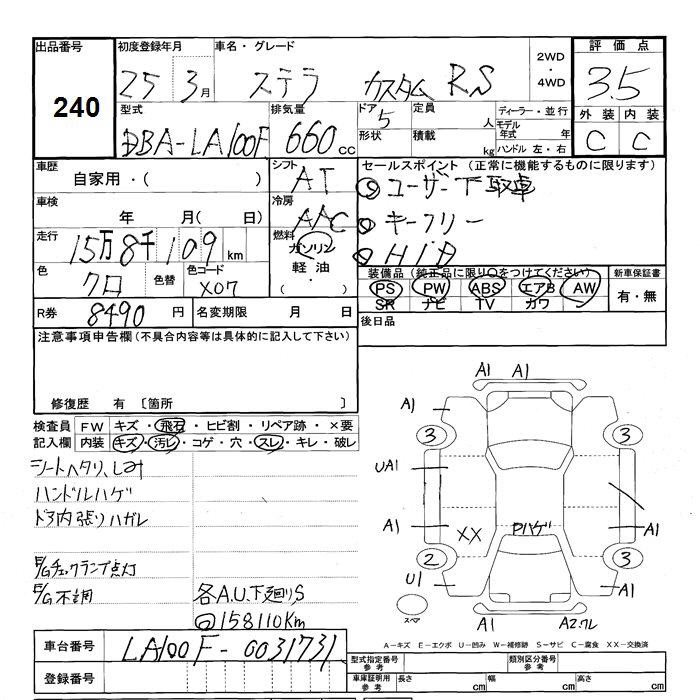 出品番号
240
初度登録年月
25 3月
車名・グレード
ステラ カスタム RS
2WD
・
4WD
評価点
3.5
外装 内装
C C
型式
DBA-LA100F
排気量
660cc
ドア
5
形状
定員
人
積載
kg
ディーラー・並行
モデル
年式 年
ハンドル 左・右
車歴
自家用・( )
シフト
AT
セールスポイント (正常に機能するものに限ります)
◎ユーザー下取車
◎キーフリー
◎HID
車検
年 月( 日)
冷房
AAC
走行
15万8千109km
燃料
ガソリン
軽油・
・( )
色
クロ
色替
色コード
X07
装備品 (純正品に限り○をつけてください)
PS PW ABS エアB AW
SR ナビ TV カワ
新車保証書
有・無
R券
8490円
名変期限 月 日
後日品
注意事項申告欄(不具合内容等は具体的に記入して下さい)
修復歴 有 〔箇所 〕
検査員
記入欄
FW キズ・飛石・ヒビ割・リペア跡・×要
内装 キズ・汚レ・コゲ・穴・スレ・キレ・破レ
シートヘタリ、しみ
ハンドルハゲ
ドア内張りハガレ
E/Gチェックランプ点灯
E/G不調
各A.U.下廻りS
◎158110Km
A1 A1
A1
3 3
UA1
A1 XX Pハゲ A1
2 3
U1 A1
スペア
A1 A2.フレ
A-キズ E-エクボ U-凹み W-補修跡 S-サビ C-腐食 XX-交換済
車台番号
LA100F-0031731
登録番号
型式指定番号
参考
類別区分番号
参考
車庫証明用
参考
長さ cm
幅 cm
高さ cm